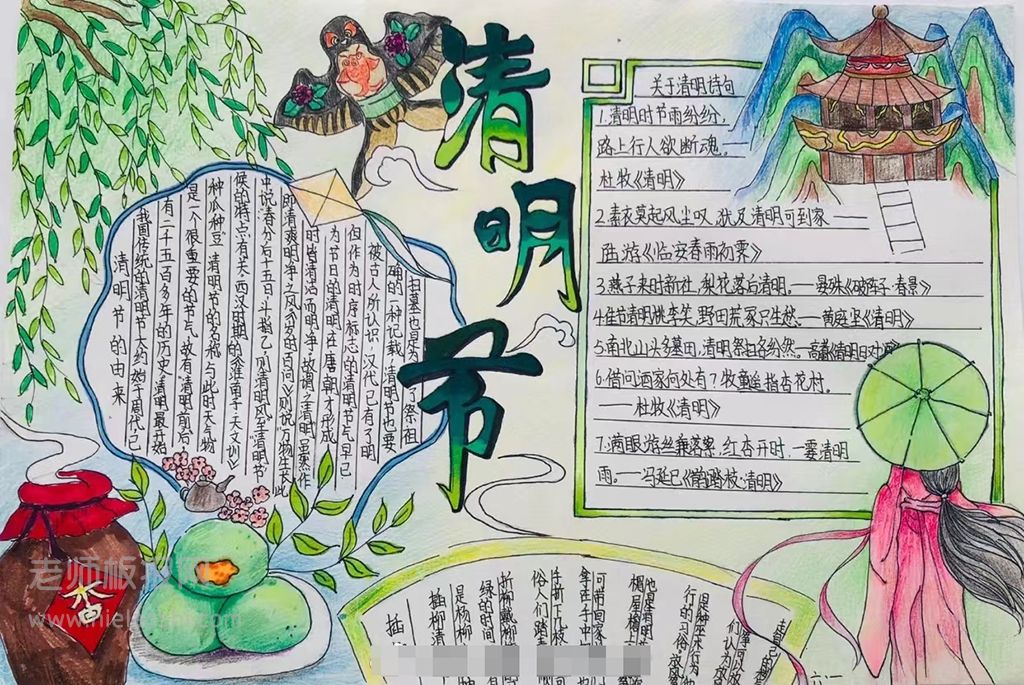 清明节
清明节的由来
我国传统的清明节大约始于周代,已
有二千五百多年的历史,清明最开始
是一个很重要的节气,故有清明前后
种瓜种豆。清明节的名称与此时天气物
候的特点有关,西汉时期的《淮南子·天文训》
中说:春分后十五日,斗指乙,则清明风至,清明节
即清爽明净之风,《岁时百问》则说万物生长此
时皆清洁而明净,故谓之清明,虽然作
为节日的清明在唐朝才形成
但作为时序标志的清明节气早已
被古人所认识,汉代已有了明
确的一种记载。清明节也要
扫墓也是为了祭祖
关于清明诗句
1.清明时节雨纷纷,
路上行人欲断魂。——
杜牧《清明》
2.素衣莫起风尘叹,犹及清明可到家——
陆游《临安春雨初霁》
3.燕子来时新社,梨花落后清明。——晏殊《破阵子·春景》
4.佳节清明桃李笑,野田荒冢只生愁。——黄庭坚《清明》
5.南北山头多墓田,清明祭扫各纷然。——高翥《清明日对酒》
6.借问酒家何处有?牧童遥指杏花村。
——杜牧《清明》
7.满眼游丝兼落絮,红杏开时,一霎清明
雨。——冯延巳《鹊踏枝·清明》
插
插柳清
是杨柳
绿的时间
折柳戴柳
俗人们踏青
手折下几枝
拿在手中
可带回家
六·一
老师板报网